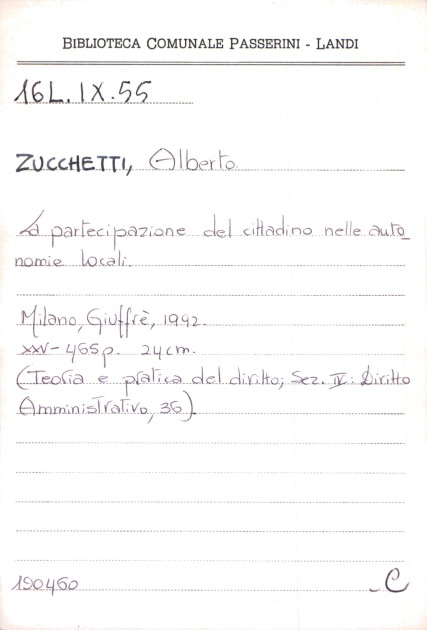 BIBLIOTECA COMUNALE PASSERINI - LANDI
16L.IX.55
ZUCCHETTI, Alberto
La partecipazione del cittadino nelle auto_
nomie locali.
Milano, Giuffrè, 1992.
XXV-465p. 24cm.
(Teoria e pratica del diritto; Sez. IV: Diritto
Amministrativo, 36).
190460
C